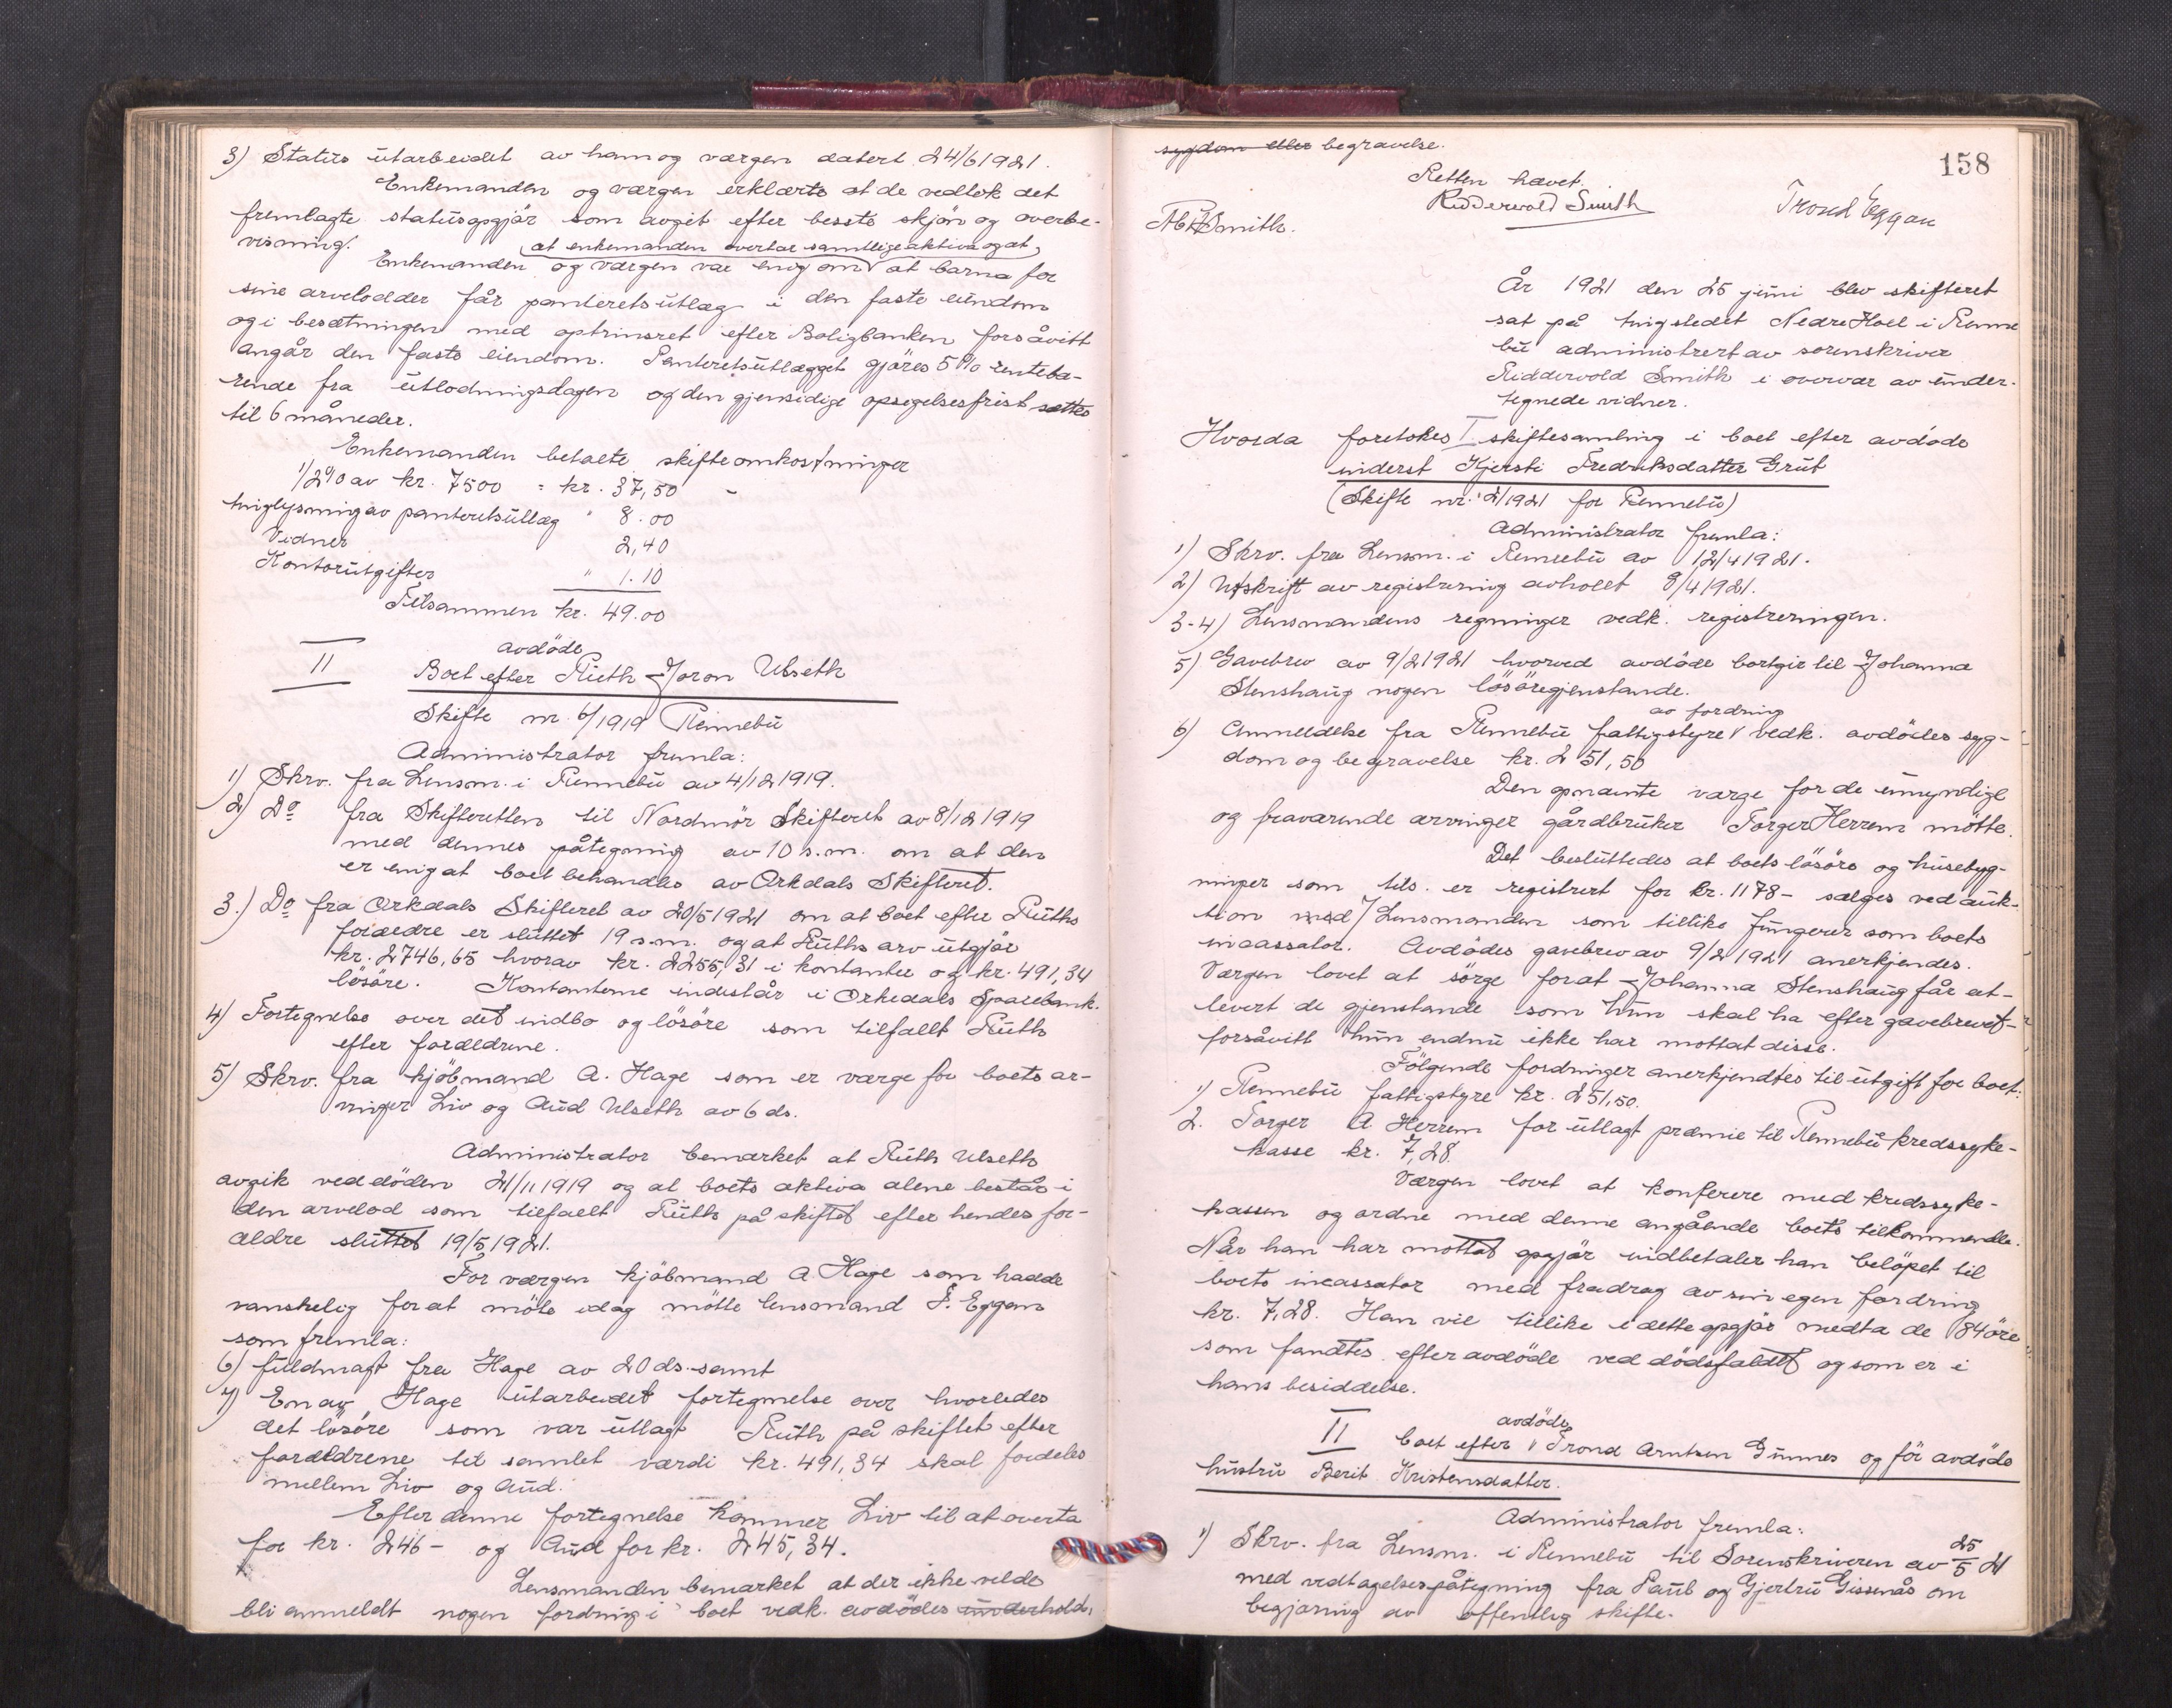 3) Status utarbeidet av ham og værgen datert 24/6 1921.
Enkemanden og værgen erklærte at de vedtok det
fremlagte statusopgjör som avgit efter bedste skjön og overbe-
visning.
at enkemanden overtar samtlige aktiva og at
Enkemanden og værgen var enig om at barna for
sine arvelodder får panteretsutlæg i den faste eiendom
og i besætningen med optrinsret efter Boligbanken forsåvitt
angår den faste eiendom. Panteretsutlægget gjöres 5% renteba-
rende fra utlodningsdagen og den gjensidige opsigelsesfrist sættes
til 6 måneder.
Enkemanden betalte skifteomkostninger
1/2% av kr. 7500 = kr. 37,50
tinglysning av panteretsutlæg " 8.00
Vidner 2,40
Kontorutgifter " 1.10
Tilsammen kr. 49.00
II
avdöde
Boet efter Ruth Joron Ulseth
Skifte nr. 6/1919 Rennebu
Administrator fremla:
1) Skrv. fra Lensm. i Rennebu av 4/12 1919.
2) Do fra Skifteretten til Nordmör Skifteret av 8/12 1919
med dennes påtegning av 10 s.m. om at den
er enig at boet behandles av Orkdals Skifteret.
3.) Do fra Orkdals Skifteret av 20/5 1921 om at boet efter Ruths
forældre er sluttet 19 s.m. og at Ruths arv utgjör
kr. 2746,65 hvorav kr. 2255,31 i kontanter og kr. 491,34
lösöre. Kontanterne indestår i Orkedals Sparebank.
4) Fortegnelse over det indbo og lösöre som tilfallt Ruth
efter forældrene.
5) Skrv. fra kjöbmand A. Hage som er værge for boets ar-
vinger Liv og Aud Ulseth av 6 ds.
Administrator bemærket at Ruth Ulseth
avgik ved döden 21/11 1919 og at boets aktiva alene består i
den arvelod som tilfallt Ruth på skiftet efter hendes for-
ældre sluttet 19/5 1921.
For værgen kjöbmand A Hage som hadde
vanskelig for at möte idag mötte lensmand Eggan
som fremla:
6) fuldmagt fra Hage av 20 ds. samt
7) En av Hage utarbeidet fortegnelse over hvorledes
det lösöre som var utlagt Ruth på skiftet efter
forældrene til samlet værdi kr. 491,34 skal fordeles
mellem Liv og Aud.
Efter denne fortegnelse kommer Liv til at overta
for kr. 246 - og Aud for kr. 245,34.
Lensmanden bemærket at der ikke vilde
bli anmeldt nogen fordring i boet vedk. avdödes underhold,
158
sygdom eller begravelse.
Retten hævet.
Ridderwold Smith
Trond Eggan
Smith.
År 1921 den 25 juni blev skifteret
sat på tingstedet Nedre Hoel i Renne
bu administrert av sorenskriver
Riddervold Smith i overvær av under-
tegnede vidner.
Hvorda foretokes I skiftesamling i boet efter avdöde
inderst Kjersti Fredriksdatter Grut
(Skifte nr. 2/1921 for Rennebu)
Administrator fremla:
1) Skrv. fra Lensm. i Rennebu av 12/4 1921.
2) Utskrift av registrering avholdt 8/4 1921.
3-4) Lensmandens regninger vedk. registreringen.
5) Gavebrev av 9/2 1921 hvorved avdöde bortgir til Johanna
Stenshaug nogen lösöregjenstande.
av fordring
6) Anmeldelse fra Rennebu fattigstyre vedk. avdödes syg-
dom og begravelse kr. 251,50
Den opnævnte værge for de umyndige
og fraværende arvinger gårdbruker Torger Herrem mötte.
Det besluttedes at boets lösöre og husebyg-
ninger som tils. er registrert for kr. 1178 - sælges ved auk-
tion ved Lensmanden som tillike fungerer som boets
incassator. Avdödes gavebrev av 9/2 1921 anerkjendes.
Værgen lovet at sörge for at Johanna Stenshaug får ut-
levert de gjenstande som hun skal ha efter gavebrevet -
forsåvitt hun endnu ikke har mottat disse.
Fölgende fordringer anerkjendtes til utgift for boet:
1) Rennebu fattigstyre kr. 251,50.
2. Torger A Herrem for utlagt præmie til Rennebu kredssyke-
kasse kr. 7,28.
Værgen lovet at konferere med kredssyke-
kassen og ordne med denne angående boets tilkommende.
Når han har mottat opgjör indbetaler han belöpet til
boets incassator med fradrag av sin egen fordring
kr. 7,28. Han vil tillike i dette opgjör medta de 84 öre
som fandtes efter avdöde ved dödsfaldet og som er i
hans besiddelse.
II
avdöde
boet efter Trond Arntsen Gunnes og för avdöde
hustru Berit Kristensdatter.
Administrator fremla:
1) Skrv. fra Lensm. i Rennebu til Sorenskriveren av 25/5 21
med vedtagelsespåtegning fra Paul og Gjertru Gissnås om
begjæring av offentlig skifte.